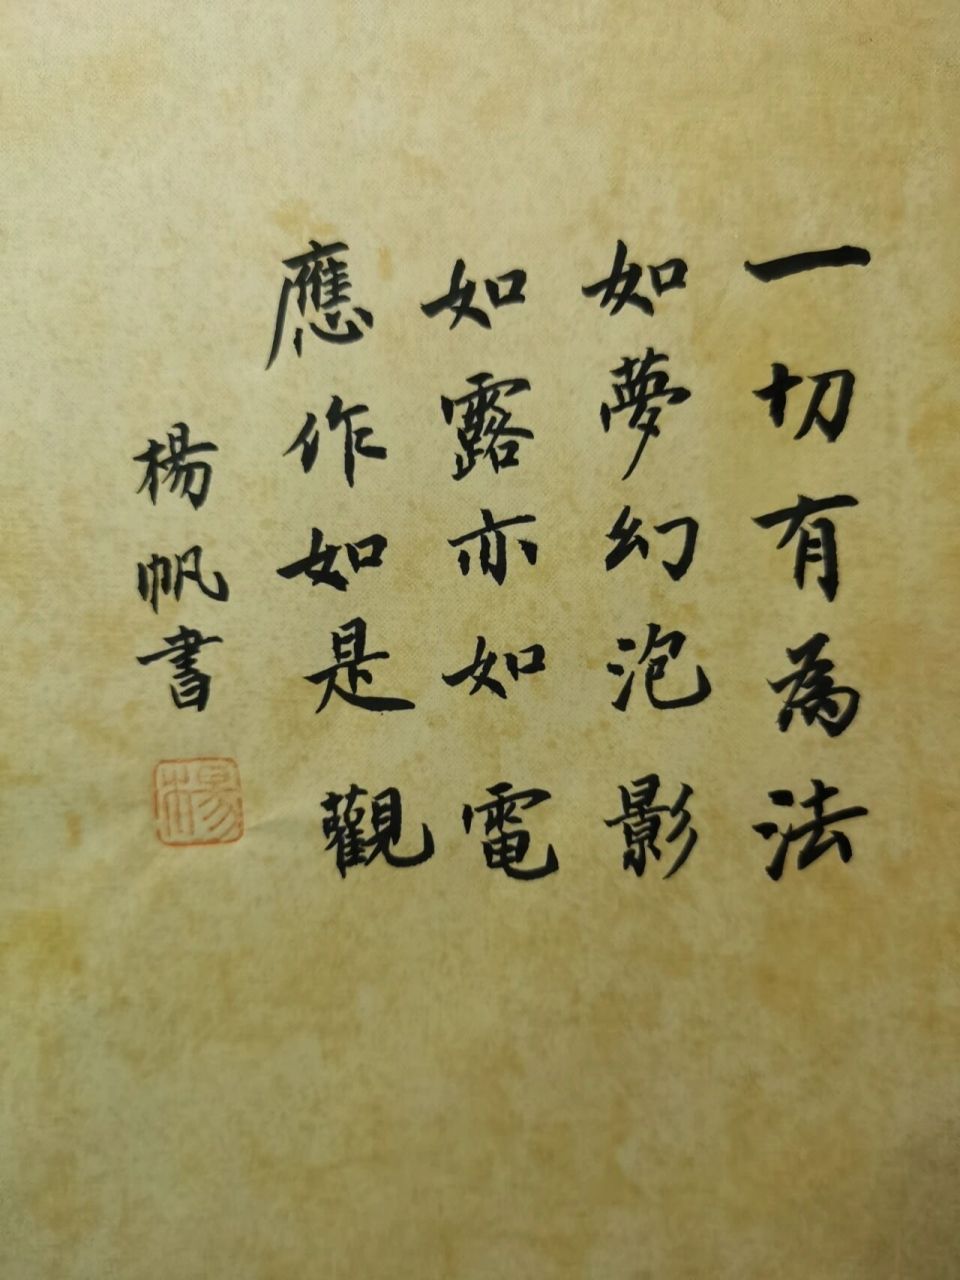 一切有為法
如夢幻泡影
如露亦如電
應作如是觀
楊帆書
楊